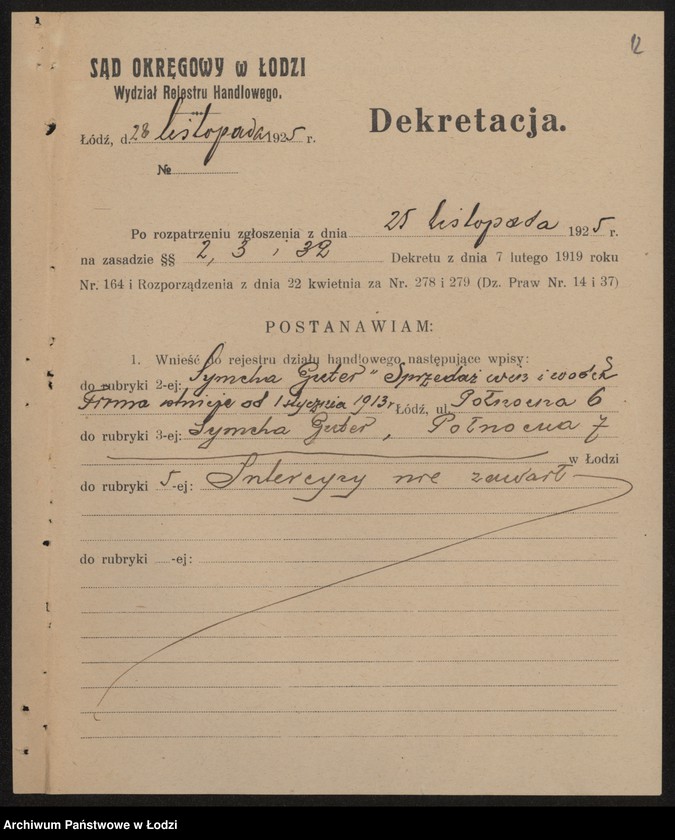 12
SĄD OKRĘGOWY w ŁODZI
Wydział Rejestru Handlowego.
Łódź, d. 28 listopada 1925 r.
№
Dekretacja.
Po rozpatrzeniu zgłoszenia z dnia 25 listopada 1925 r.
na zasadzie §§ 2, 3 i 32 Dekretu z dnia 7 lutego 1919 roku
Nr. 164 i Rozporządzenia z dnia 22 kwietnia za Nr. 278 i 279 (Dz. Praw Nr. 14 i 37)
POSTANAWIAM:
1. Wnieść do rejestru działu handlowego następujące wpisy:
do rubryki 2-ej: Symcha Guter" Sprzedaż win i wódek
Firma istnieje od 1 stycznia 1913 r Łódź, ul. Północna 6
do rubryki 3-ej: Symcha Guter, Północna 7
w Łodzi
do rubryki 5-ej: Intercyzy nie zawarł
do rubryki -ej:
Archiwum Państwowe w Łodzi